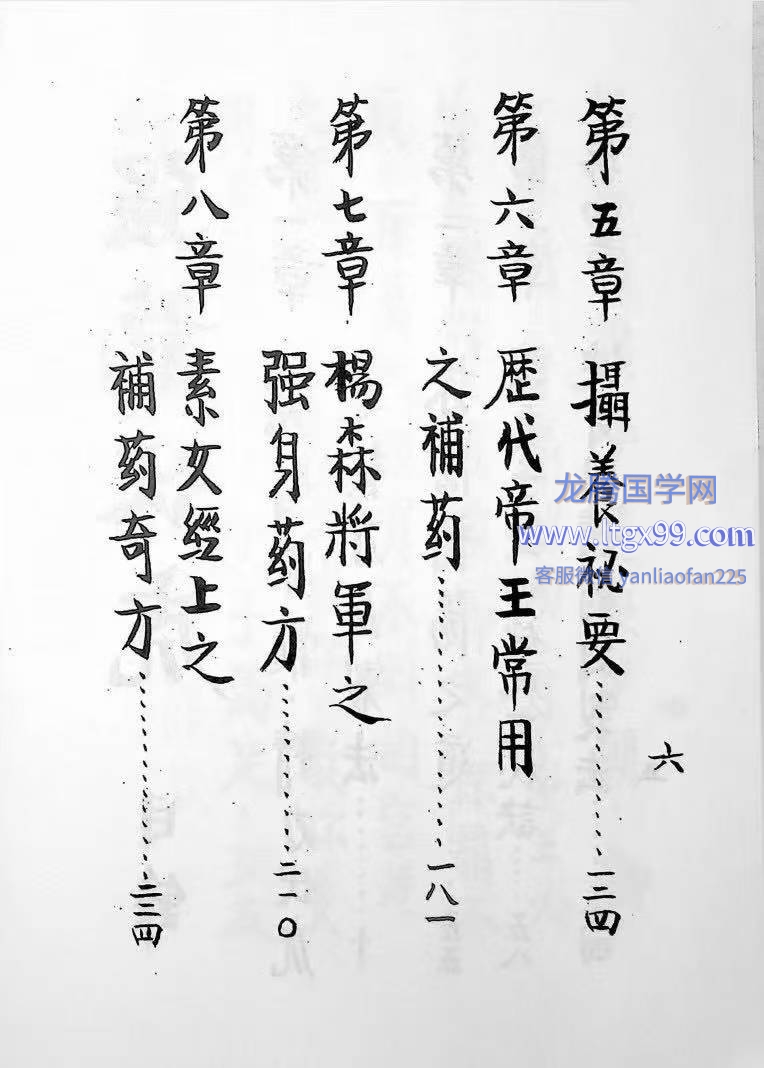 第五章 攝養祕要……………一三四
第六章 歷代帝王常用
之補药……………一八一
第七章 楊森將軍之
强身药方……………二一〇
第八章 素女經上之
補药奇方……………二三四
六
龙腾国学网
www.ltgx99.com
客服微信 yanliaofan225